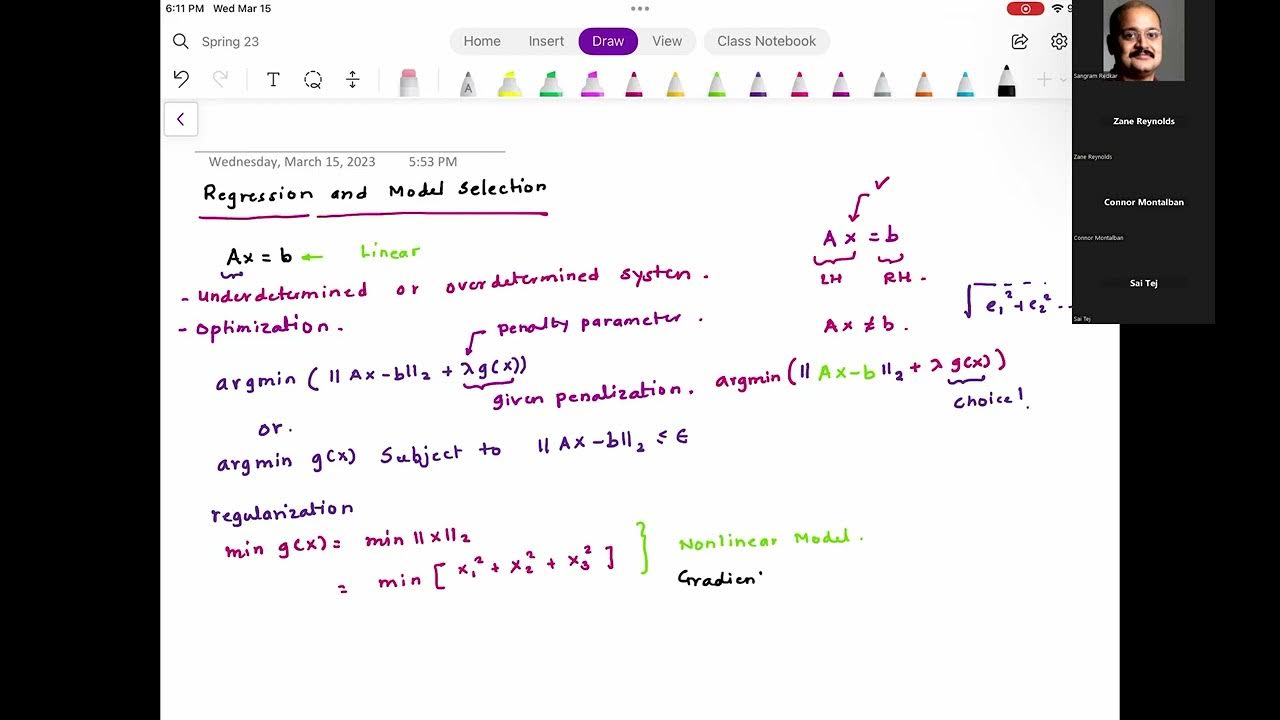 6:11 PM Wed Mar 15
Spring 23
Home Insert Draw View Class Notebook
T
A
Wednesday, March 15, 2023 5:53 PM
Regression and Model Selection
Ax = b ← Linear
- Underdetermined or overdetermined system.
- Optimization.
penalty parameter.
argmin ( || Ax - b||₂ + λ g(x))
given penalization.
or.
argmin g(x) Subject to || Ax - b||₂ ≤ ε
regularization
min g(x) = min ||x||₂
= min [ x₁² + x₂² + x₃² ]
Nonlinear Model.
Gradien
✓
Ax = b
LH RH.
Ax ≠ b.
√ e₁² + e₂² --
argmin (|| Ax - b ||₂ + λ g(x))
choice!
Sangram Redkar
Zane Reynolds
Zane Reynolds
Connor Montalban
Connor Montalban
Sai Tej
Sai Tej